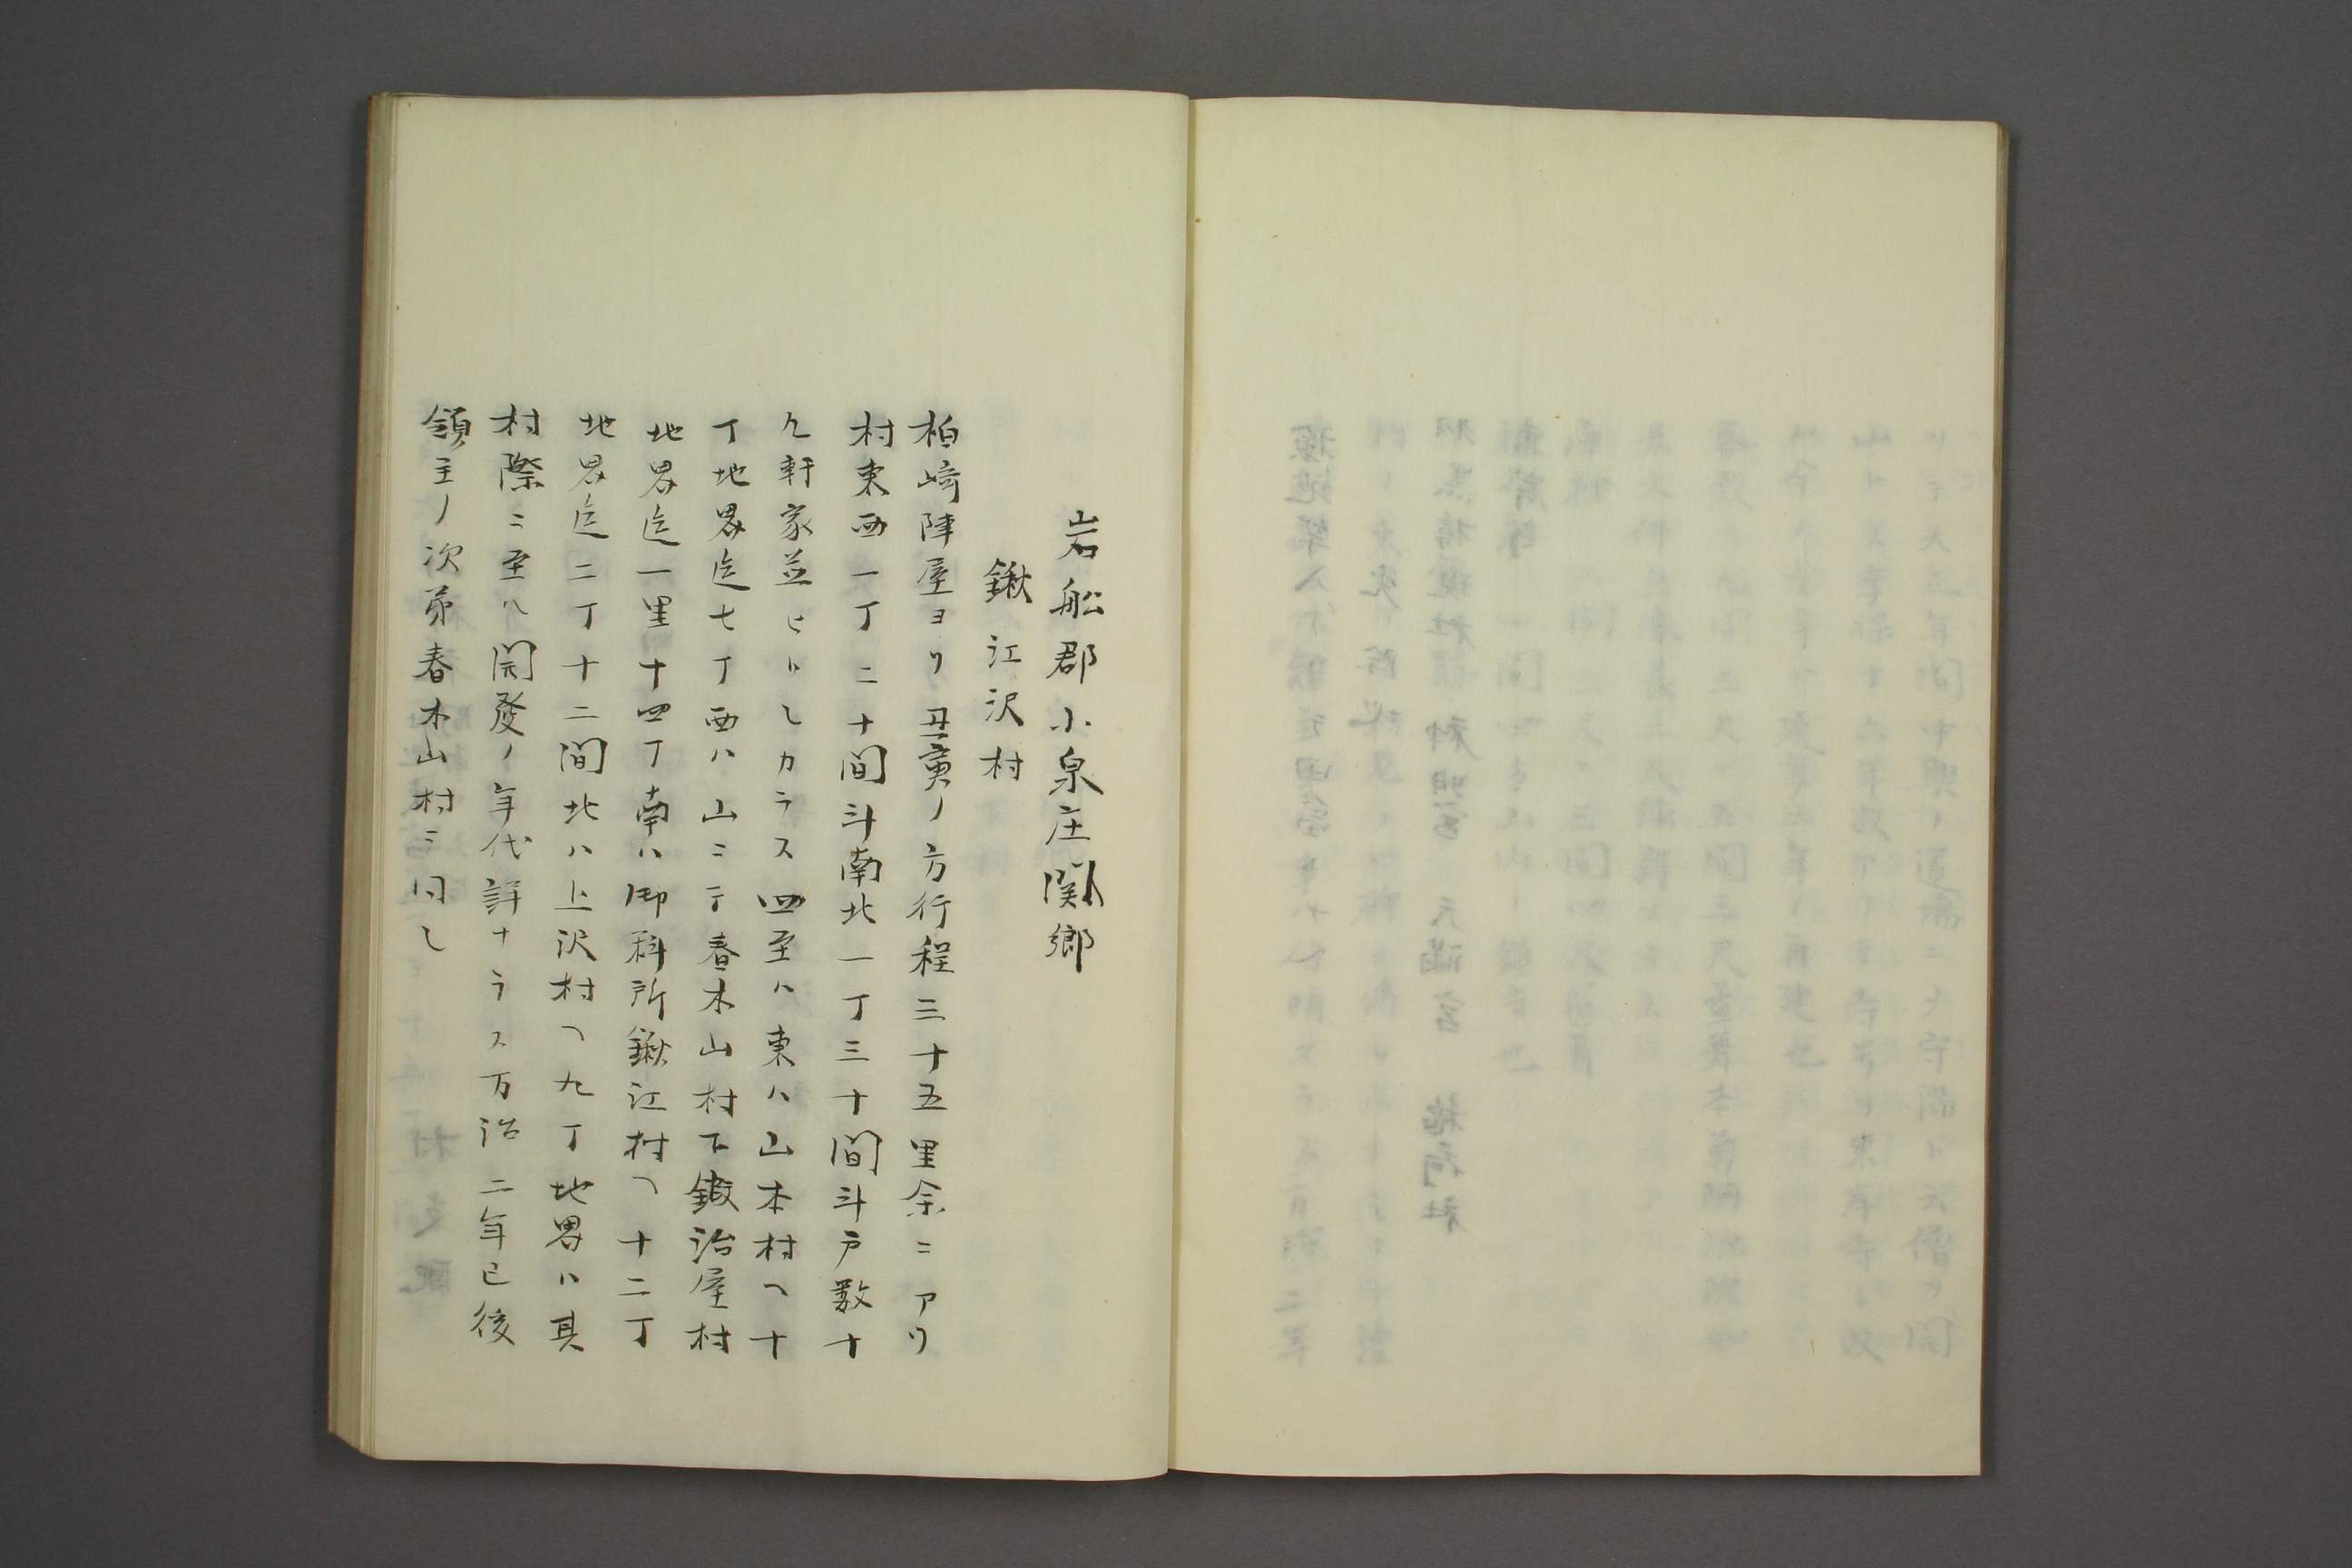 岩船郡小泉庄関郷
鍬江沢村
柏崎陣屋ヨリ丑寅ノ方行程三十五里余ニアリ
村東西一丁二十間斗南北一丁三十間斗戸数十
九軒家並ヒトシカラス四至ハ東ハ山本村ヘ十
丁地界迄七丁西ハ山ニテ春木山村下鍜治屋村
地界迄一里十四丁南ハ御料所鍬江村ヘ十二丁
地界迄二丁十二間北ハ上沢村ヘ九丁地界ハ其
村際ニ至ル開發ノ年代詳ナラス万治二年已後
領主ノ次第春木山村ニ同シ